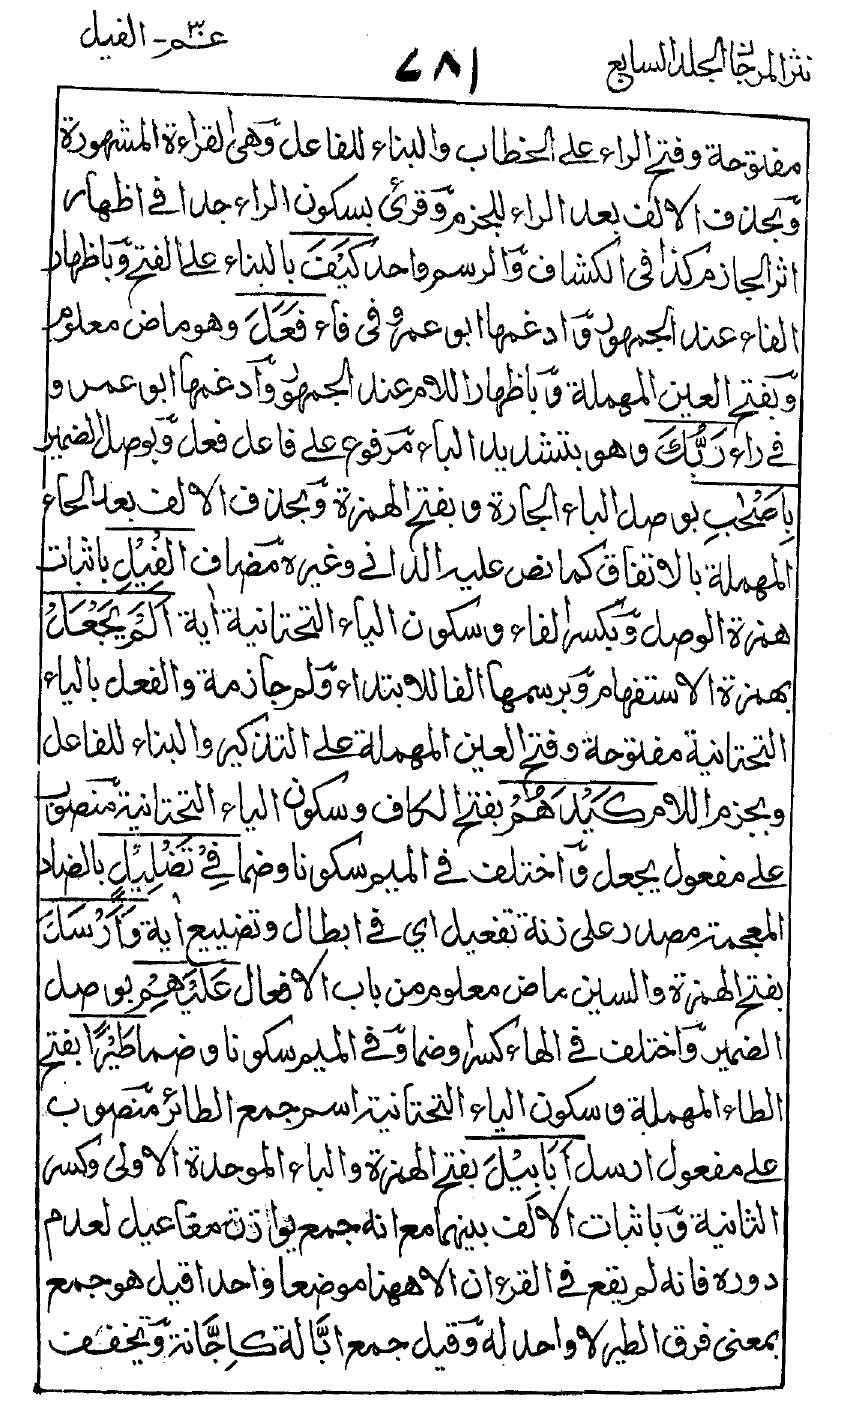 نثر المرجان الجلد السابع
٧٨١
عم٣ - الفيل
مفتوحة وفتح الراء على الخطاب والبناء للفاعل وهي القراءة المشهورة
وبحذف الالف بعد الراء للجزم وقرئ بسكون الراء جدا في اظهار
اثر الجازم كذا في الكشاف والرسم واحد كَيْفَ بالبناء على الفتح وباظهار
الفاء عند الجمهور وادغمها ابو عمرو في فاء فَعَلَ وهو ماض معلوم
وبفتح العين المهملة وباظهار اللام عند الجمهور وادغمها ابو عمرو
في راء رَبُّكَ وهو بتشديد الباء مرفوع على فاعل فعل وبوصل الضمير
بِاَصْحٰبِ بوصل الباء الجارة وبفتح الهمزة وبحذف الالف بعد الحاء
المهملة بالاتفاق كما نص عليه الداني وغيره مضاف الْفِيْلِ باثبات
همزة الوصل وبكسر الفاء وسكون الياء التحتانية اٰية اَلَمْ يَجْعَلْ
بهمزة الاستفهام وبرسمها الفا للابتداء ولم جازمة والفعل بالياء
التحتانية مفتوحة وفتح العين المهملة على التذكير والبناء للفاعل
وبجزم اللام كَيْدَهُمْ بفتح الكاف وسكون الياء التحتانية منصوب
على مفعول يجعل واختلف في الميم سكونا وضما فِيْ تَضْلِيْلٍ بالضاد
المعجمة مصدر على زنة تفعيل اي في ابطال وتضييع اٰية وَّاَرْسَلَ
بفتح الهمزة والسين ماض معلوم من باب الافعال عَلَيْهِمْ بوصل
الضمير واختلف في الهاء كسرا وضما وفي الميم سكونا وضما طَيْرًا بفتح
الطاء المهملة وسكون الياء التحتانية اسم جمع الطائر منصوب
على مفعول ارسل اَبَابِيْلَ بفتح الهمزة والباء الموحدة الاولى وكسر
الثانية وباثبات الالف بينهما مع انه جمع يوازن مفاعيل لعدم
دوره فانه لم يقع في القرءان الا ههنا موضعا واحدا قيل هو جمع
بمعنى فرق الطير لا واحد له وقيل جمع ابَّالة كاِجَّانة وتخفف